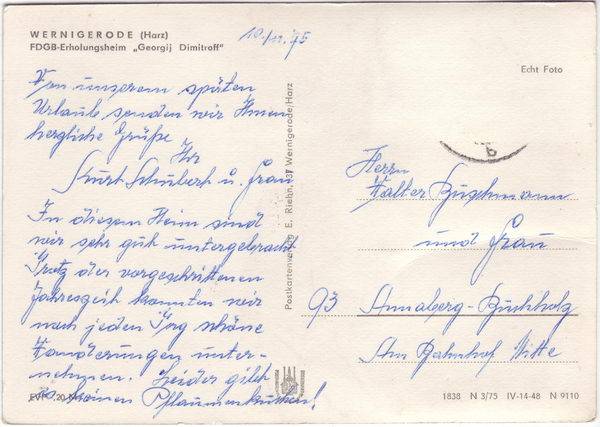 WERNIGERODE (Harz)
FDGB-Erholungsheim „Georgij Dimitroff"
10./11. 75
Echt Foto
Von unserem späten
Urlaub senden wir Ihnen
herzliche Grüße
Ihr
Kurt Schubert u. Frau
In diesem Heim sind
wir sehr gut untergebracht
Trotz der vorgeschrittenen
Jahreszeit konnten wir
noch jeden Tag schöne
Wanderungen unter-
nehmen. Leider gibt
es keinen Pflaumenkuchen!
EVP 20
Postkartenverlag E. Riehn, 37 Wernigerode/Harz
Herrn
Walter Buschmann
und Frau
93 Annaberg-Buchholz
Am Bahnhof Mitte
b
1838 N 3/75 IV-14-48 N 9110